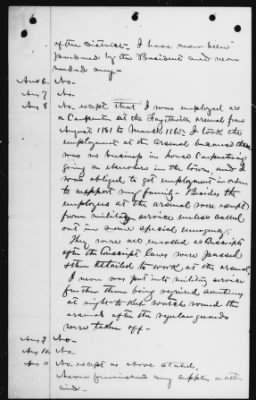 of the District - I have never been
pardoned by the President and never
needed any -
Ans 6. No.
Ans 7 No.
Ans 8 No, except that I was employed as
a Carpenter at the Fayetteville Arsenal from
August 1861 to March 1865. I took the
employment at the arsenal because there
was no business in house Carpentering
going on elsewhere in the town, and I
was obliged to get employment in order
to support my family - Besides the
employees at the arsenal were exempt
from military service unless called
out in some special emergency.
They were all enrolled as Conscripts
after the Conscript laws were passed
& then detailed to work at the arsenal,
I never was put into military service
further than being required sometimes
at night to keep watch round the
arsenal after the regular guards
were taken off -
Ans 9 No -
Ans 10 No.
Ans 11 No except as above stated,
never furnished any supplies or other
aid -